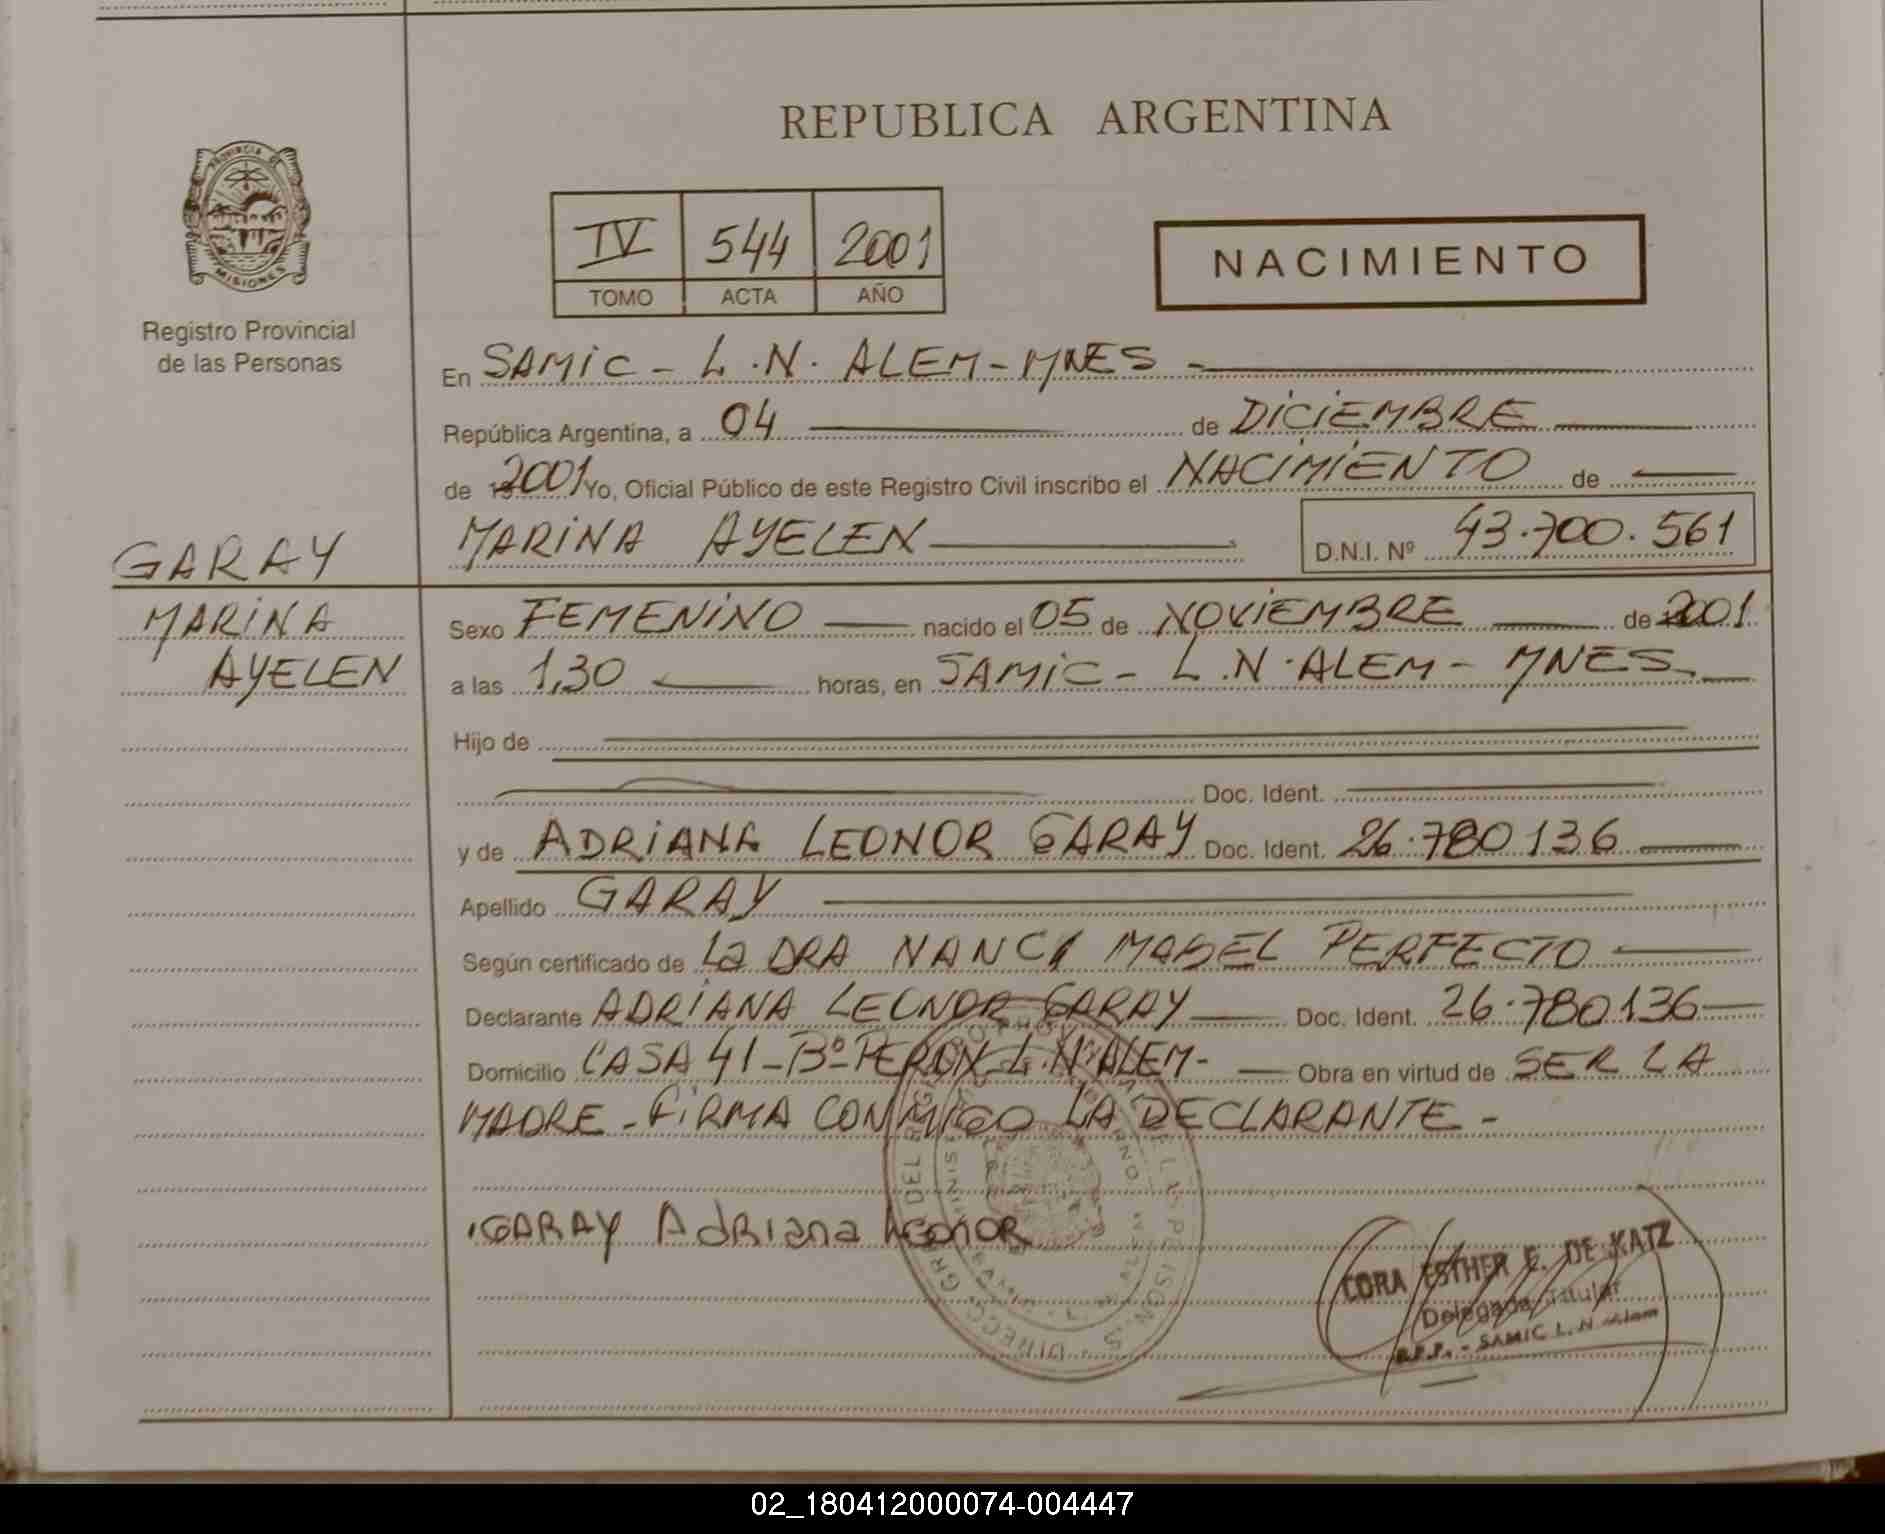 REPUBLICA ARGENTINA
PROVINCIA DE
MISIONES
Registro Provincial
de las Personas
IV 544 2001
TOMO ACTA AÑO
NACIMIENTO
En SAMIC - L.N. ALEM - MNES -
República Argentina, a 04 de DICIEMBRE
de 2001 Yo, Oficial Público de este Registro Civil inscribo el NACIMIENTO de
MARINA AYELEN D.N.I. Nº 43.700.561
GARAY
MARINA
AYELEN
Sexo FEMENINO nacido el 05 de NOVIEMBRE de 2001
a las 1,30 horas, en SAMIC - L.N. ALEM - MNES
Hijo de
Doc. Ident.
y de ADRIANA LEONOR GARAY Doc. Ident. 26.780136
Apellido GARAY
Según certificado de La DRA NANCI MABEL PERFECTO
Declarante ADRIANA LEONOR GARAY Doc. Ident. 26.780136
Domicilio CASA 41 - Bº PERON - L.N ALEM - Obra en virtud de SER LA
MADRE - FIRMA CONMIGO LA DECLARANTE -
GARAY AdRiana LeonoR
CORA ESTHER E. DE KATZ
Delegada Titular
R.P.P. - SAMIC L. N. Alem
02_180412000074-004447